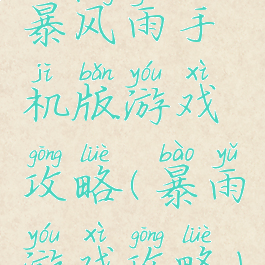 暴风雨手
jī bǎn yóu xì
机版游戏
gōng lüè bào yǔ
攻略(暴雨
yóu xì gōng lüè
游戏攻略)